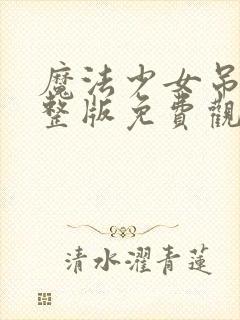 魔法少女吊
整版免費觀
清水濯青蓮